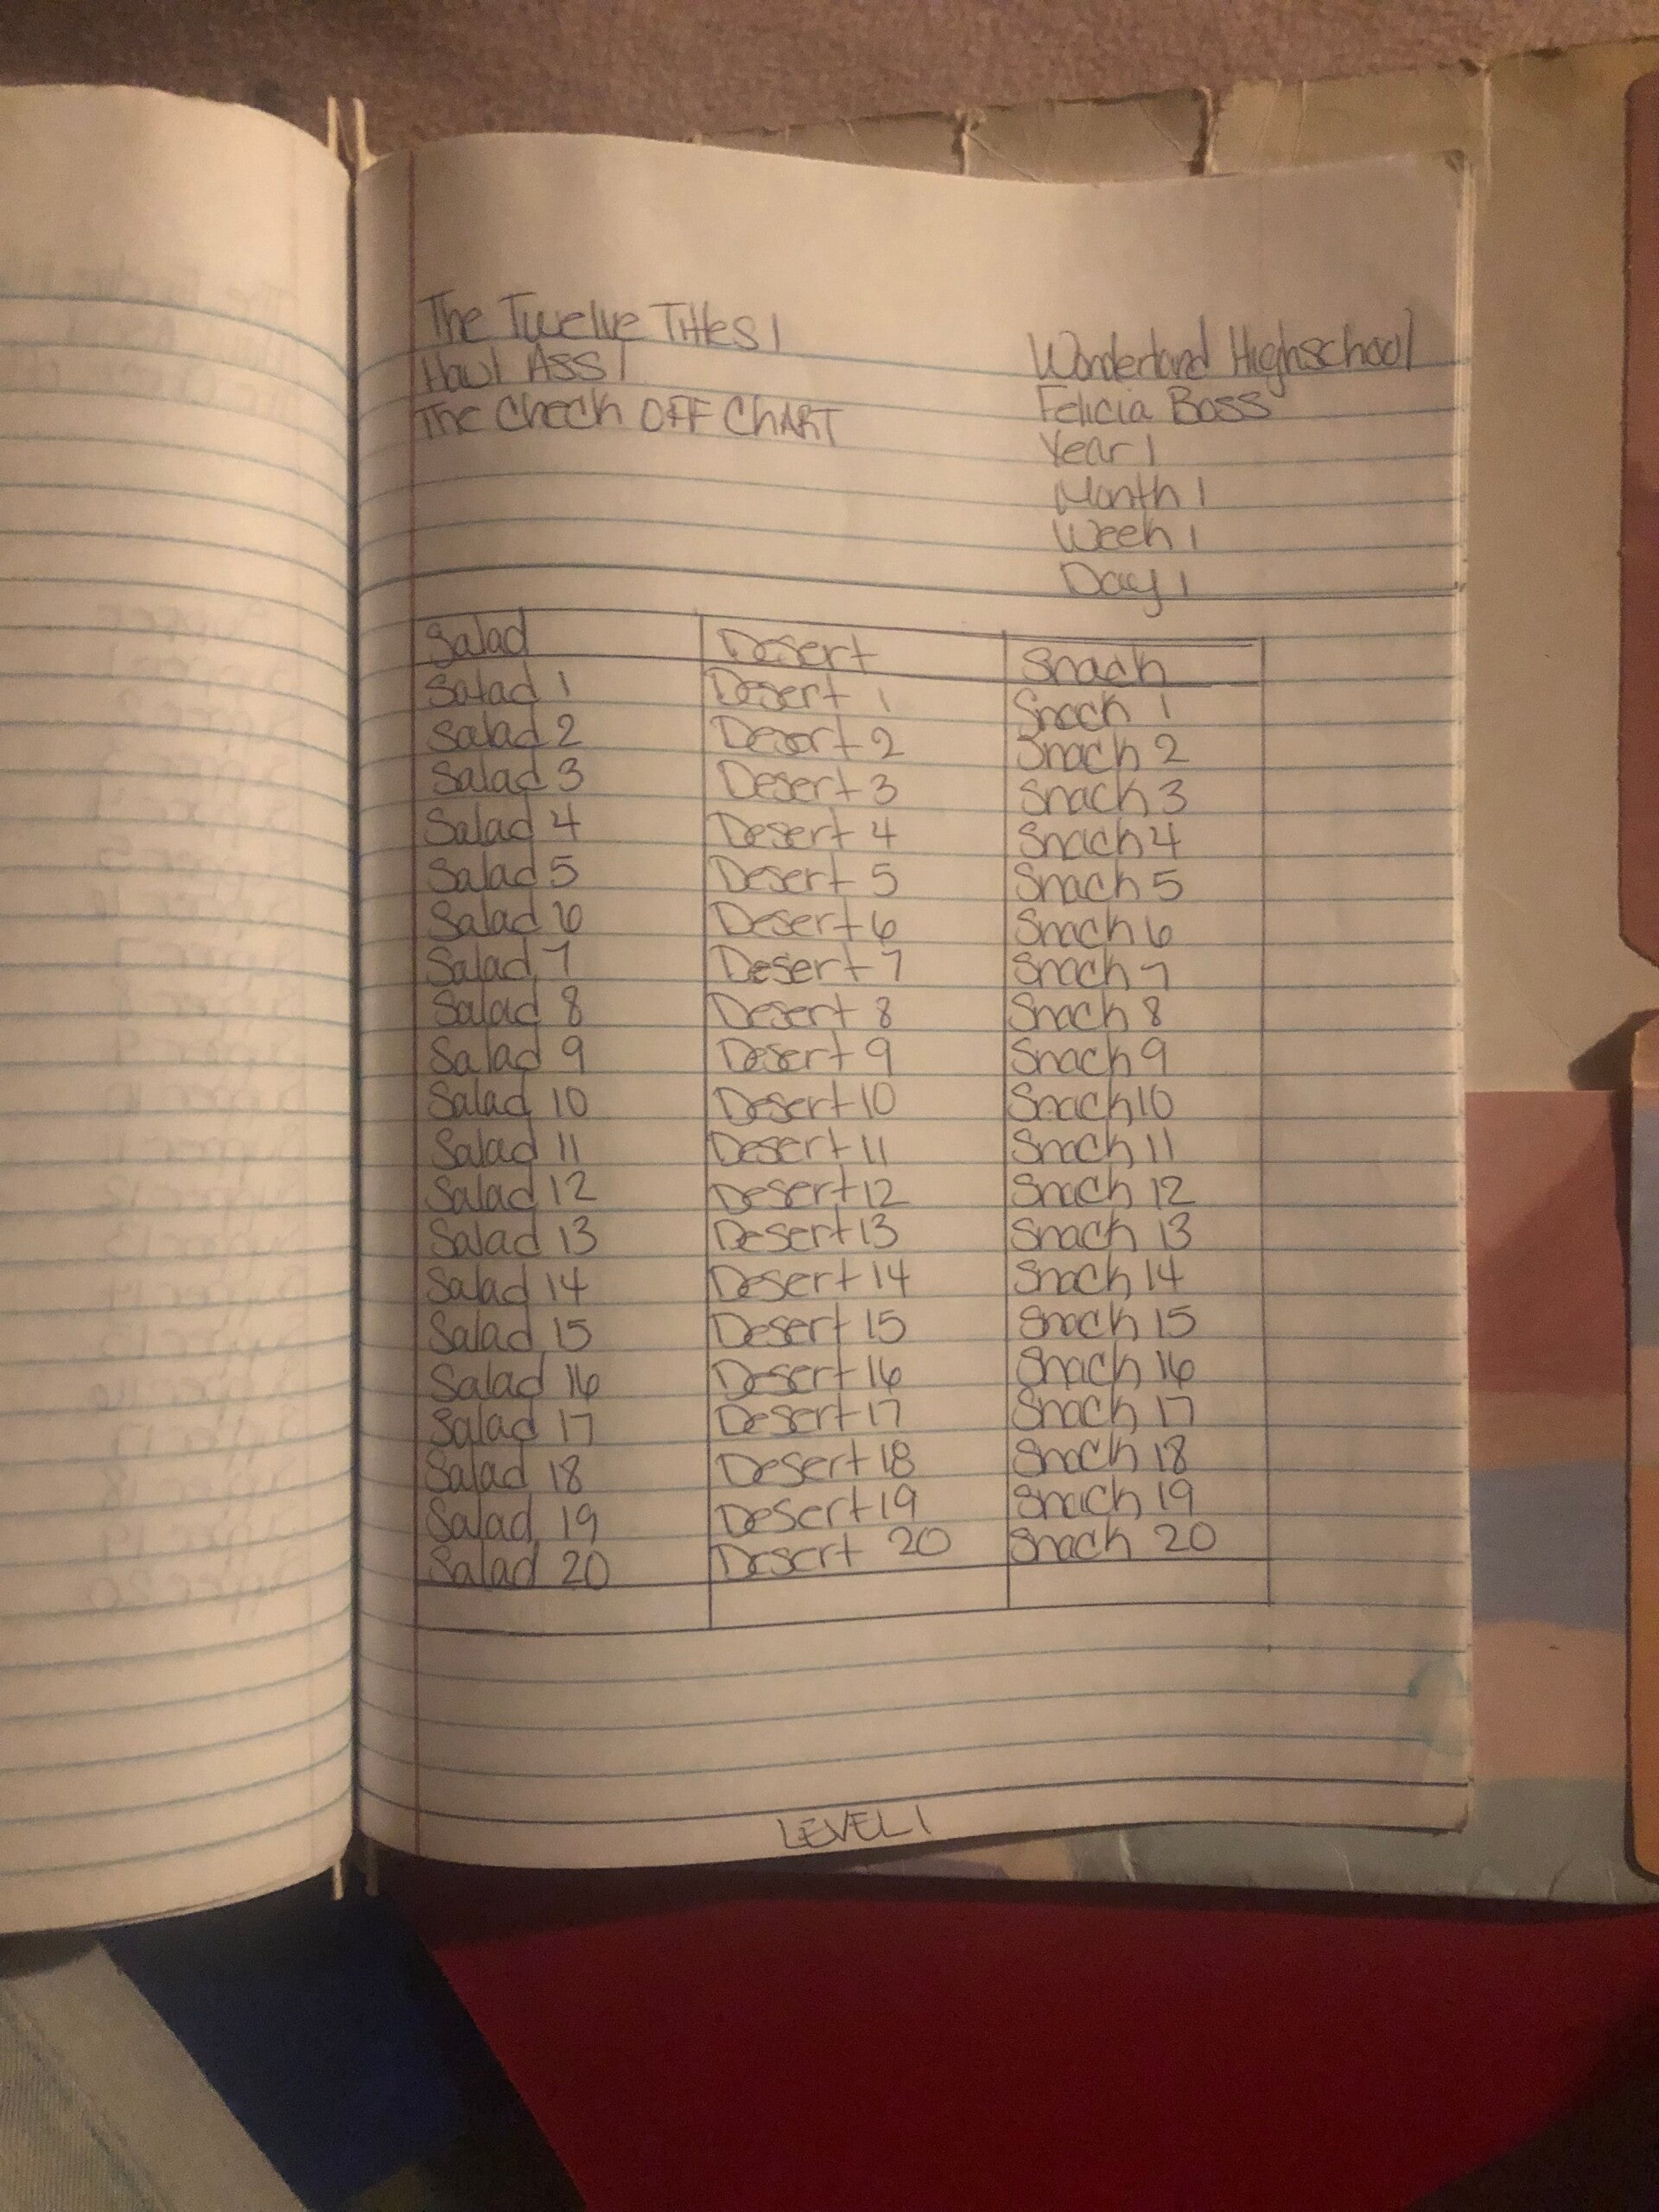 The Twelve Titles 1
Howl ASS 1
The Check OFF CHART
Wonderland Highschool
Felicia Boss
Year 1
Month 1
Week 1
Day 1
Salad Desert Snack
Salad 1 Desert 1 Snack 1
Salad 2 Desert 2 Snack 2
Salad 3 Desert 3 Snack 3
Salad 4 Desert 4 Snack 4
Salad 5 Desert 5 Snack 5
Salad 6 Desert 6 Snack 6
Salad 7 Desert 7 Snack 7
Salad 8 Desert 8 Snack 8
Salad 9 Desert 9 Snack 9
Salad 10 Desert 10 Snack 10
Salad 11 Desert 11 Snack 11
Salad 12 Desert 12 Snack 12
Salad 13 Desert 13 Snack 13
Salad 14 Desert 14 Snack 14
Salad 15 Desert 15 Snack 15
Salad 16 Desert 16 Snack 16
Salad 17 Desert 17 Snack 17
Salad 18 Desert 18 Snack 18
Salad 19 Desert 19 Snack 19
Salad 20 Desert 20 Snack 20
LEVEL 1